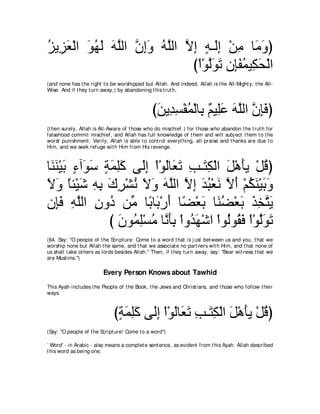 وَمَا مِنْ إِلَـهٍ إِلاَّ اللَّهُ وَإِنَّ اللَّهَ لَهُوَ الْعَزِيزُ
الْحَكِيمُفَإِن تَوَلَّوْاْ)
(and none has the right to be worshipped but Allah. And indeed, Allah is the All-Mighty, the All-
Wise. And if they turn away,) by abandoning this truth,
(فَإِنَّ اللَّهَ عَلِيمٌ بِالْمُفْسِدِينَ)
(then surely, Allah is All-Aware of those who do mischief.) for those who abandon the truth for
falsehood commit mischief, and Allah has full knowledge of them and will subject them to the
worst punishment. Verily, Allah is able to control everything, all praise and thanks are due to
Him, and we seek refuge with Him from His revenge.
(قُلْ يأَهْلَ الْكِتَـبِ تَعَالَوْاْ إِلَى كَلِمَةٍ سَوَآءٍ بَيْنَنَا
وَبَيْنَكُمْ أَلاَّ نَعْبُدَ إِلاَّ اللَّهَ وَلاَ نُشْرِكَ بِهِ شَيْئاً وَلاَ
يَتَّخِذَ بَعْضُنَا بَعْضًا أَرْبَابًا مِّن دُونِ اللَّهِ فَإِن
تَوَلَّوْاْ فَقُولُواْ اشْهَدُواْ بِأَنَّا مُسْلِمُونَ )
(64. Say: "O people of the Scripture: Come to a word that is just between us and you, that we
worship none but Allah the same, and that we associate no partners with Him, and that none of
us shall take others as lords besides Allah." Then, if they turn away, say: "Bear witness that we
are Muslims.")
Every Person Knows about Tawhid
This Ayah includes the People of the Book, the Jews and Christians, and those who follow their
ways.
(قُلْ يأَهْلَ الْكِتَـبِ تَعَالَوْاْ إِلَى كَلِمَةٍ)
(Say: "O people of the Scripture! Come to a word")
`Word' - in Arabic - also means a complete sentence, as evident from this Ayah. Allah described
this word as being one,